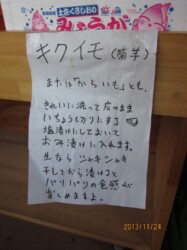 土佐くろしおの
みょうが
キクイモ(菊芋)
または「からいも」とも。
きれいに洗って皮のまま
いちょう切りにする
塩漬けにしておいて
お汁に入れます。
生なら シャキシャキ
干してから漬けると
パリパリの食感が
楽しめますよ。
2013/11/24